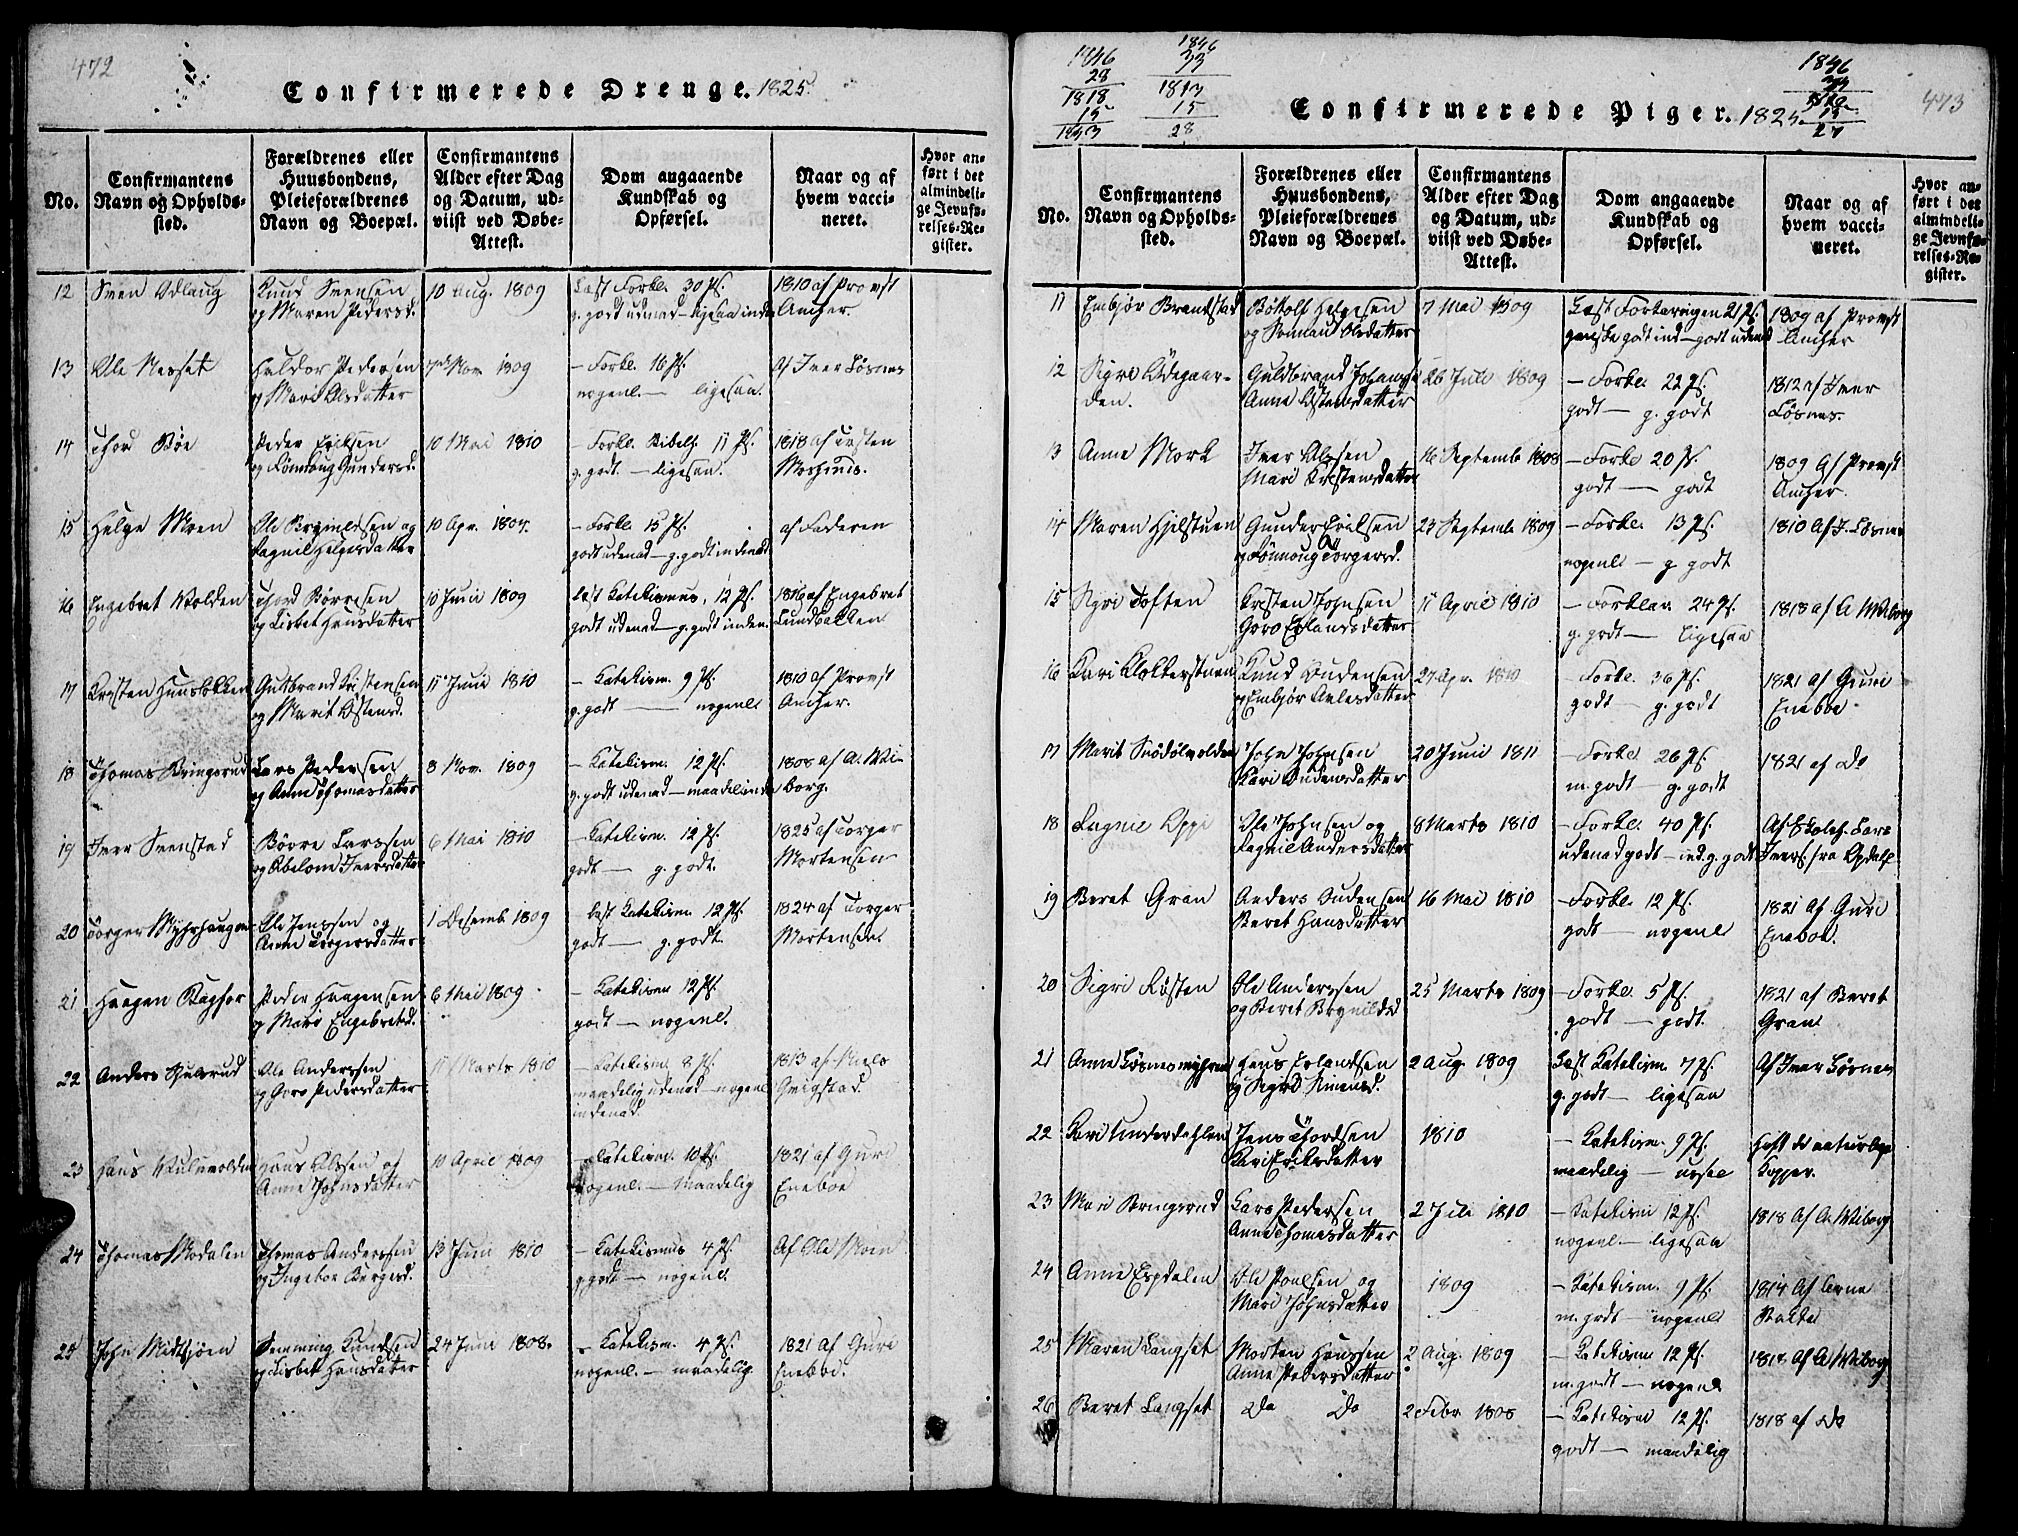 472
Confirmerede Drenge. 1825.
No.
Confirmantens
Navn og Opholds-
sted.
Forældrenes eller
Huusbondens,
Pleieforældrenes
Navn og Boepæl.
Confirmantens
Alder efter Dag
og Datum, ud-
viist ved Døbe-
Attest.
Dom angaaende
Kundskab og
Opførsel.
Naar og af
hvem vacci-
neret.
Hvor an-
ført i det
almindeli-
ge Jevnfø-
relses-Re-
gister.
12 Sven Udlaug
Knud Svensen
og Maren Pedersd.
10 Aug. 1809
Læst Forkl. 30 Ps.
g. godt udenad – ligesaa inde
1810 af Provst
Ancher.
13 Ole Nesset
Haldor Pedersen
og Mari Olsdatter
7de Nov. 1809
– Forkl. 16 Ps.
nogenl. – ligesaa.
Af Iver Løsnes
14 Thor Bøe
Peder Eriksen
og Rønnoug Gundersd.
10 Mai 1810
– Forkl. Bibelh. 11 Ps.
g. godt – ligesaa.
1818 af Torsten
15 Helge Moen
Ole Brynildsen og
Ragnil Helgesdatter
10 Apr. 1807.
– Forkl. 15 Ps.
godt udenad – g. godt indenad
af Faderen
16 Engebret Volden
Thord Børresen
og Lisbet Hansdatter
10 Juni 1809
Læst Katekismus, 12 Ps.
godt udenad – g. godt inden.
1816 af Engebret
Lundbakken
17 Kristen Huusløkken
Gulbrand Kristensen
og Marit Østensd.
11 Juni 1810
– Katekism. 9 Ps.
g. godt – nogenl.
1810 af Provst
Ancher.
18 Thomas Bringsrud
Lars Pedersen
og Anne Thomasdatter
8 Nov. 1809
– Katekism. 12 Ps.
g. godt udenad – maadel. inde
1808 af A. Wi-
borg.
19 Iver Svenstad
Børre Larssen
og Abelone Iversdatter
6 Mai 1810
– Katekism. 12 Ps.
godt – g. godt.
1825 af Torger
Mortensen
20 Torger Myhrhaugen
Ole Jenssen og
Anne Torgersdatter
1 Desemb. 1809
– læst Katekism. 12 Ps.
godt – g. godt.
1824 af Torger
Mortensen.
21 Haagen Bagfor
Peder Haagensen
og Mari Engebretsd.
6 Mai 1809
– Katekism 12 Ps.
godt – nogenl.
22 Anders Hulsrud
Ole Anderssen
og Goro Pedersdatter
11 Marts 1810
– Katekism. 8 Ps.
maadelig udenad – nogenl.
indenad.
1813 af Niels
Qvigstad.
23 Hans Mulvolden
Hans Olssen og
Anne Johnsdatter
10 April 1809
– Katekism. 10 Ps.
nogenl. – maadelig
1821 af Guri
Eneboe
24 Thomas Modalen
Thomas Anderssen
og Ingebor Bergesd.
13 Juni 1810
– Katekismus 4 Ps.
g. godt – nogenl.
Af Ole Moen
25 John Midtsjøen
Semming Knudsen
og Lisbet Hansdatter
24 Juni 1808.
– Katekism. 4 Ps.
nogenl. – maadelig.
1821 af Guri
Eneboe.
1846
28
1818
15
1846
33
1813
15
28
1846
15
27
473
Confirmerede Piger. 1825.
No.
Confirmantens
Navn og Opholds-
sted.
Forældrenes eller
Huusbondens,
Pleieforældrenes
Navn og Boepæl.
Confirmantens
Alder efter Dag
og Datum, ud-
viist ved Døbe-
Attest.
Dom angaaende
Kundskab og
Opførsel.
Naar og af
hvem vacci-
neret.
Hvor an-
ført i det
almindeli-
ge Jevnfø-
relses-Re-
gister.
11 Embjør Brandstad
Botolf Helgesen
og Olsdatter
7 Mai 1809
Læst Forklaringen 21 Ps.
ganske godt ind – godt udenad
1809 af Provst
Ancher
12 Sigri Ødegaar-
den.
Guldbrand Johanss.
Anne Østensdatter
26 Juli 1809
– Forkl. 22 Ps.
godt – g. godt
1812 af Iver
Løsnes.
13 Anne Mork
Iver Olssen
Mari Kristensdatter
16 Septemb. 1808
– Forkl. 20 Ps.
godt – godt
1809 Af Provst
Ancher.
14 Maren Hjelstuen
Gunder Eriksen
og Rønnoug Torgersd.
23 Septemb. 1809
– Forkl. 13 Ps.
nogenl. – g. godt
1810 Af I. Løsnes
15 Sigri Toften
Kristen Johnsen
Goro Erlandsdatter
11 April 1810
– Forklar. 24 Ps.
g. godt – ligesaa
1818 af A. Wiborg
16 Kari Klokkerstuen
Knud Oudensen
og Embjør Avlesdatter
27 Apr. 1810
– Forkl. 36 Ps.
godt – g. godt
1821 af Guri
Eneboe
17 Marit Snødølvolden
John Johnsen
Kari Oudensdatter
20 Juni 1811
– Forkl. 26 Ps.
m. godt – g. godt
1821 af Do
18 Ragnil Oppi
Ole Johnsen og
Ragnil Andersdatter
8 Marts 1810
– Forkl. 40 Ps.
udenad godt – ind. g. godt
Af Skoleh. Lars
Ivers. fra Opdahl
19 Beret Gran
Anders Oudensen
Beret Hansdatter
16 Mai 1810
– Forkl. 12 Ps.
godt – nogenl.
1821 Af Guri
Eneboe.
20 Sigri Røsten
Ole Anderssen
og Beret Brynildsd.
25 Marts 1809
– Forkl. 5 Ps.
godt – godt.
1821 af Beret
Gran
21 Anne Løsnesmyhren
Hans Erlandsen
og Sigrid Simensd.
2 Aug. 1809
Læst Katekism. 7 Ps.
g. godt – ligesaa
Af Iver Løsnes
22 Kari Underdahlen
Jens Thordsen
Kari Eriksdatter
1810
– Katekism. 9 Ps.
maadelig – ussel
Haft de naturlige
Kopper.
23 Mari Bringsrud
Lars Pedersen
Anne Thomasdatter
2 Juli 1810
– Katekism 12 Ps.
nogenl. – ligesaa
1818 Af A. Wiborg
24 Anne Espdalen
Ole Poulsen og
Mari Johnsdatter
1809
– Katekism. 9 Ps.
m. godt – nogenl.
1814 Af Arne
Bakke
25 Maren Langset
Morten Hanssen
Anne Pedersdatter
2 Aug. 1809
– Katekism 12 Ps.
m. godt – nogenl.
1818 Af A. Wiborg
26 Beret Langset
Do Do
2 Febr. 1808
– Katekism 12 Ps.
godt – maadelig
1818 af Do